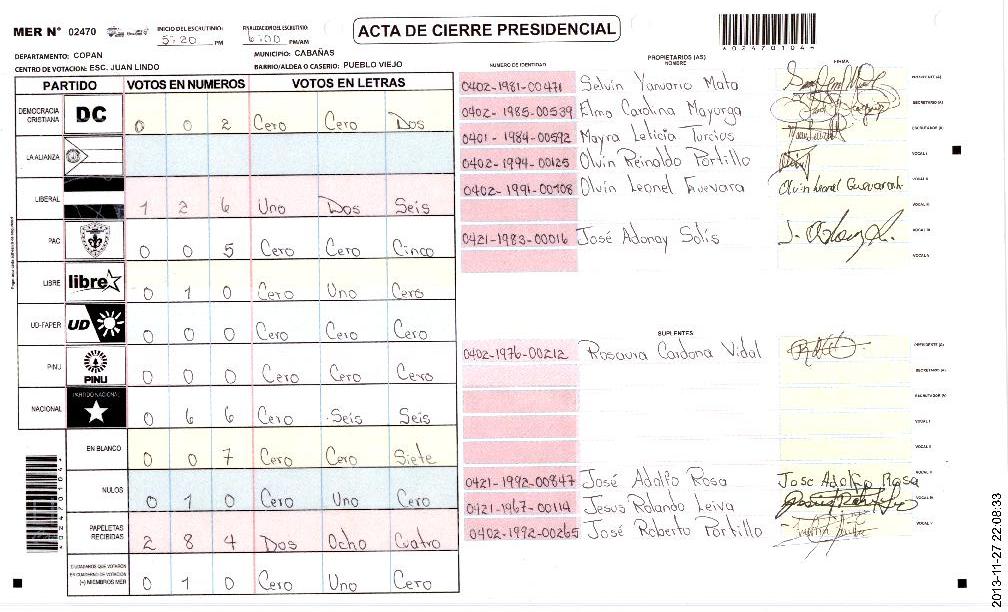 MER N° 02470
INICIO DEL ESCRUTINIO: 5:20 PM
FINALIZACION DEL ESCRUTINIO: 6:00 PM/AM
ACTA DE CIERRE PRESIDENCIAL
A024701044
DEPARTAMENTO: COPAN
MUNICIPIO: CABAÑAS
CENTRO DE VOTACION: ESC. JUAN LINDO
BARRIO/ALDEA O CASERIO: PUEBLO VIEJO
PARTIDO VOTOS EN NUMEROS VOTOS EN LETRAS
DEMOCRACIA CRISTIANA DC 0 0 2 Cero Cero Dos
LA ALIANZA
LIBERAL 1 2 6 Uno Dos Seis
PAC 0 0 5 Cero Cero Cinco
LIBRE libre 0 1 0 Cero Uno Cero
UD-FAPER UD 0 0 0 Cero Cero Cero
PINU PINU 0 0 0 Cero Cero Cero
NACIONAL PARTIDO NACIONAL 0 6 6 Cero Seis Seis
EN BLANCO 0 0 7 Cero Cero Siete
NULOS 0 1 0 Cero Uno Cero
PAPELETAS RECIBIDAS 2 8 4 Dos Ocho Cuatro
CIUDADANOS QUE VOTARON EN CUADERNO DE VOTACION (+) MIEMBROS MER 0 1 0 Cero Uno Cero
NUMERO DE IDENTIDAD PROPIETARIOS (AS) NOMBRE FIRMA
0402-1981-00471 Selvin Yanuario Mata PRESIDENTE (A)
0402-1985-00539 Elmo Carolina Mayorga SECRETARIO (A)
0401-1984-00592 Mayra Leticia Turcios ESCRUTADOR (A)
0402-1994-00125 Olvin Reinaldo Portillo VOCAL I
0402-1991-00708 Olvin Leonel Guevara VOCAL II
VOCAL III
0421-1983-00016 José Adonay Solís VOCAL IV
VOCAL V
SUPLENTES
0402-1976-00212 Rosaura Cardona Vidal PRESIDENTE (A)
SECRETARIO (A)
ESCRUTADOR (A)
VOCAL I
VOCAL II
0421-1992-00847 José Adolfo Rosa Jose Adolfo Rosa
0421-1967-00114 Jesus Rolando Leiva VOCAL IV
0402-1992-00265 José Roberto Portillo VOCAL V
2013-11-27 22:08:33